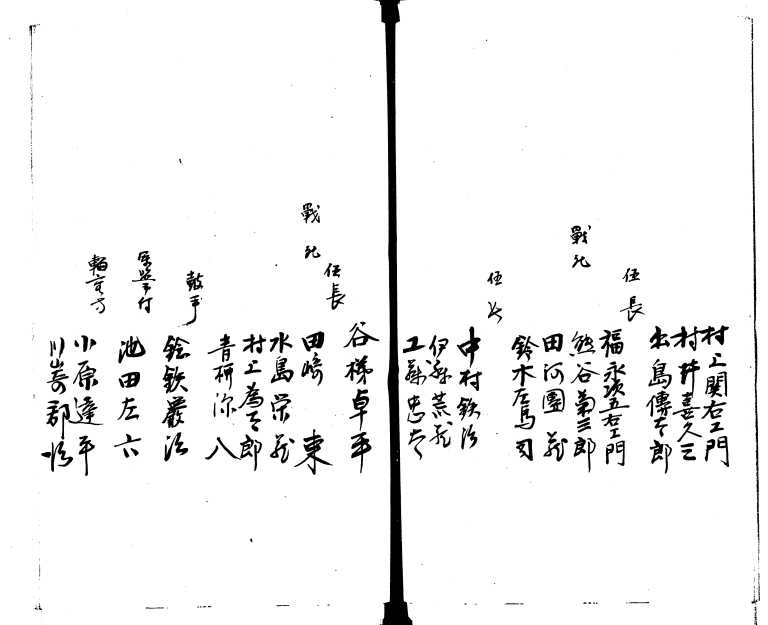 村上関右エ門
村井喜久三
伍長
出島傳太郎
福永次五右エ門
戰死
熊谷菊三郎
田河園蔵
鈴木左馬司
伍長
中村鉄治
伊藤荒蔵
工藤忠太
谷梯卓平
伍長
戰死
田崎東
水島栄蔵
村上為太郎
青柳深八
鼓手
鉄巌治
池田左六
小原達平
川嵜郡治